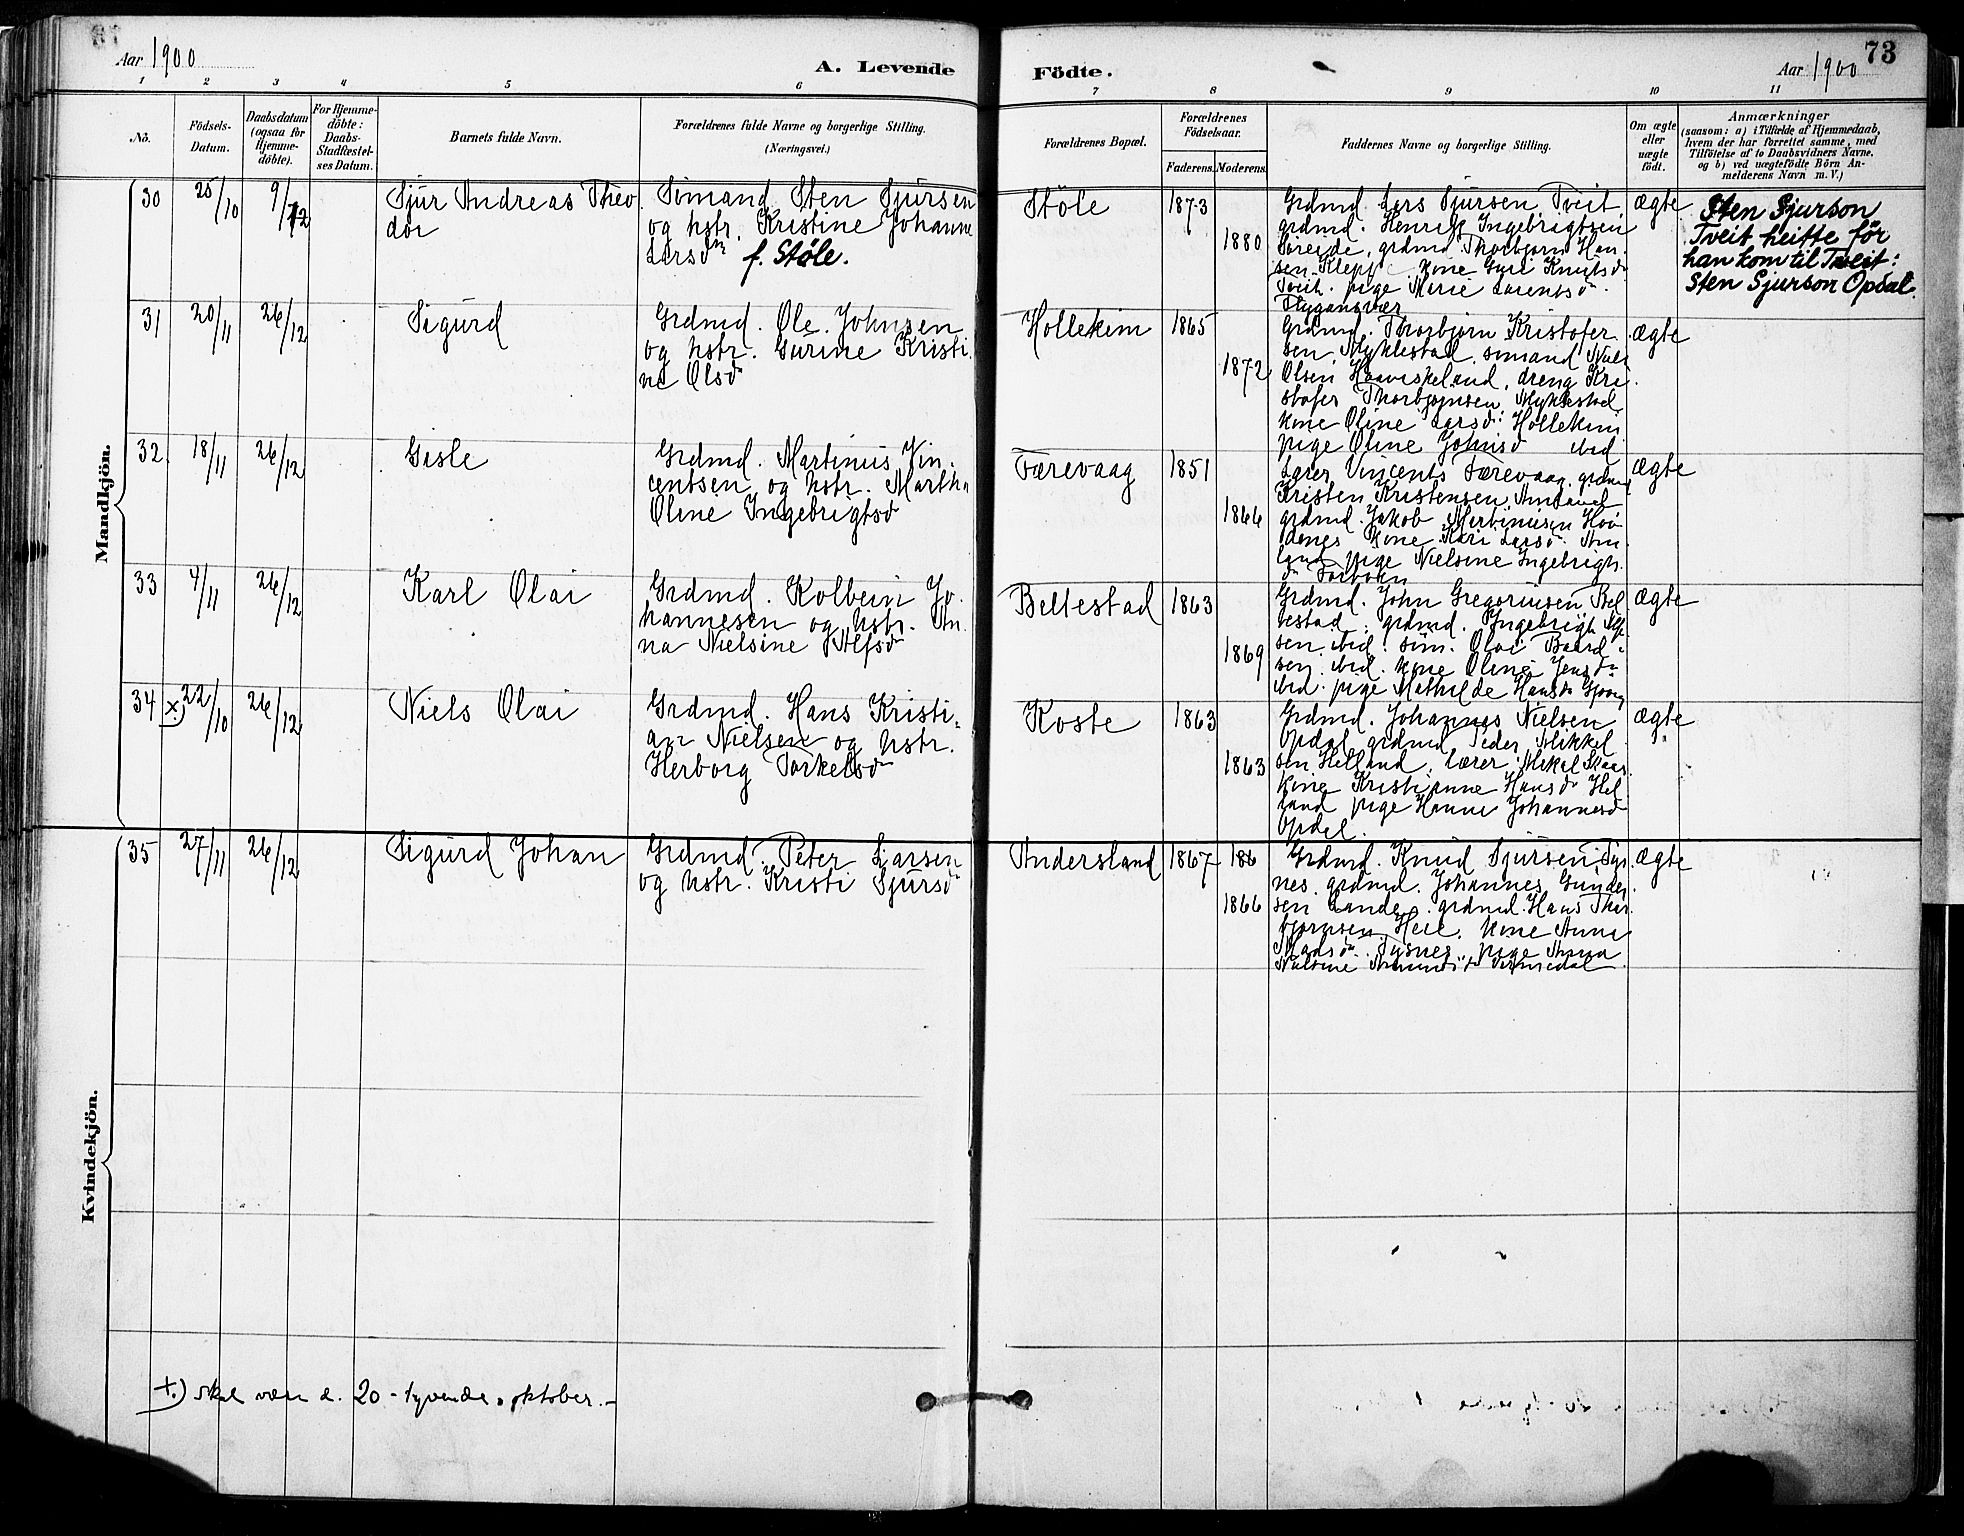 Aar 1900
A. Levende
Födte.
73
Aar 1900
1 2 3 4 5 6 7 8 9 10 11
No.
Födsels-
Datum.
Daabsdatum
(ogsaa for
Hjemme-
döbte).
For Hjemme-
döbte:
Daabs-
Stadfæstel-
ses Datum.
Barnets fulde Navn.
Forældrenes fulde Navne og borgerlige Stilling.
(Næringsvei.)
Forældrenes Bopæl.
Forældrenes
Födselsaar.
Faderens. Moderens.
Faddernes Navne og borgerlige Stilling.
Om ægte
eller
uægte
födt.
Anmærkninger
(saasom: a) i Tilfælde af Hjemmedaab,
hvem der har forrettet samme, med
Tilföielse af to Daabsvidners Navne,
og b) ved uægtefödte Börn An-
melderens Navn m. V.)
Mandkjön.
30
25/10
9/12
Sjur Andreas Theo
dor
Sömand Sten Sjursen
og hstr. Kristine Johanne
Larsdr f. Støle.
Stöle
1873
1880
Grdmd. Lars Sjursen Tveit
grdmd. Henrik Ingebrigtsen
Sreide, grdmd. Thorbjørn Han
sen Klepp kone Guri Knutsdr
Tveit. pige Marie Larentsdr
Flygansvær
ægte
Sten Sjurson
Tveit heitte før
han kom til Tveit:
Sten Sjurson Opdal.
31
20/11
26/12
Sigurd
Grdmd. Ole Johnsen
og hstr. Gurine Kristi
ne Olsdr
Hollekim
1865
1872
Grdmd. Thorbjørn Kristofer
sen Myklestad, sömand Niels
Olsen Haaviskeland, dreng Kri
stofer Thorbjønsen Myklestad
kone Oline Larsdr Hollekim
pige Oline Johnsdr ibid
ægte
32
18/11
26/12
Gisle
Grdmd. Martinus Vin
centsen og hstr. Martha
Oline Ingebrigtsdr
Færevaag
1851
1866
Lærer Vincents Færevaag, grdmd
Kristen Kristensen
grdmd. Jakob Martinusen Hov
danes kone Kari Larsdr Am
land pige Nielsine Ingebrigts
dr
ægte
33
4/11
26/12
Karl Olai
Grdmd. Kolbein Jo
hannesen og hstr. An
na Nielsine Alfsdr
Beltestad
1863
1869
Grdmd. John Gregoriusen Bel
testad, grdmd. Ingebrigt Alf
sen ibid. söm. Olai Baard
sen ibid. kone Oline Jensdr
ibid. pige Mathilde Hansdr
ægte
34
x) 22/10
26/12
Niels Olai
Grdmd. Hans Kristi-
an Nielsen og hstr.
Herborg Torkelsdr
Koste
1863
1863
Grdmd. Johannes Nielsen
Opdal grdmd Peder Mikkel
sen Helland, Lærer Mikal Skaar
kone Kristianne Hansdr Hel
land pige Hanna Johannesdr
Opdal.
ægte
Kvindekjön.
35
27/11
26/12
Sigurd Johan
Grdmd. Peter Larsen
og hstr. Kristi Sjursdr
Andersland
1867
186
1866
Grdmd. Knud Sjursen Tys
nes grdmd. Johannes Gunder
sen Lande, grdmd. Hans Thor
bjørnsen Heie. kone Anna
Madsdr Tysnes, pige Anna
ægte
x.) skal være d. 20 - tyvende oktober. -